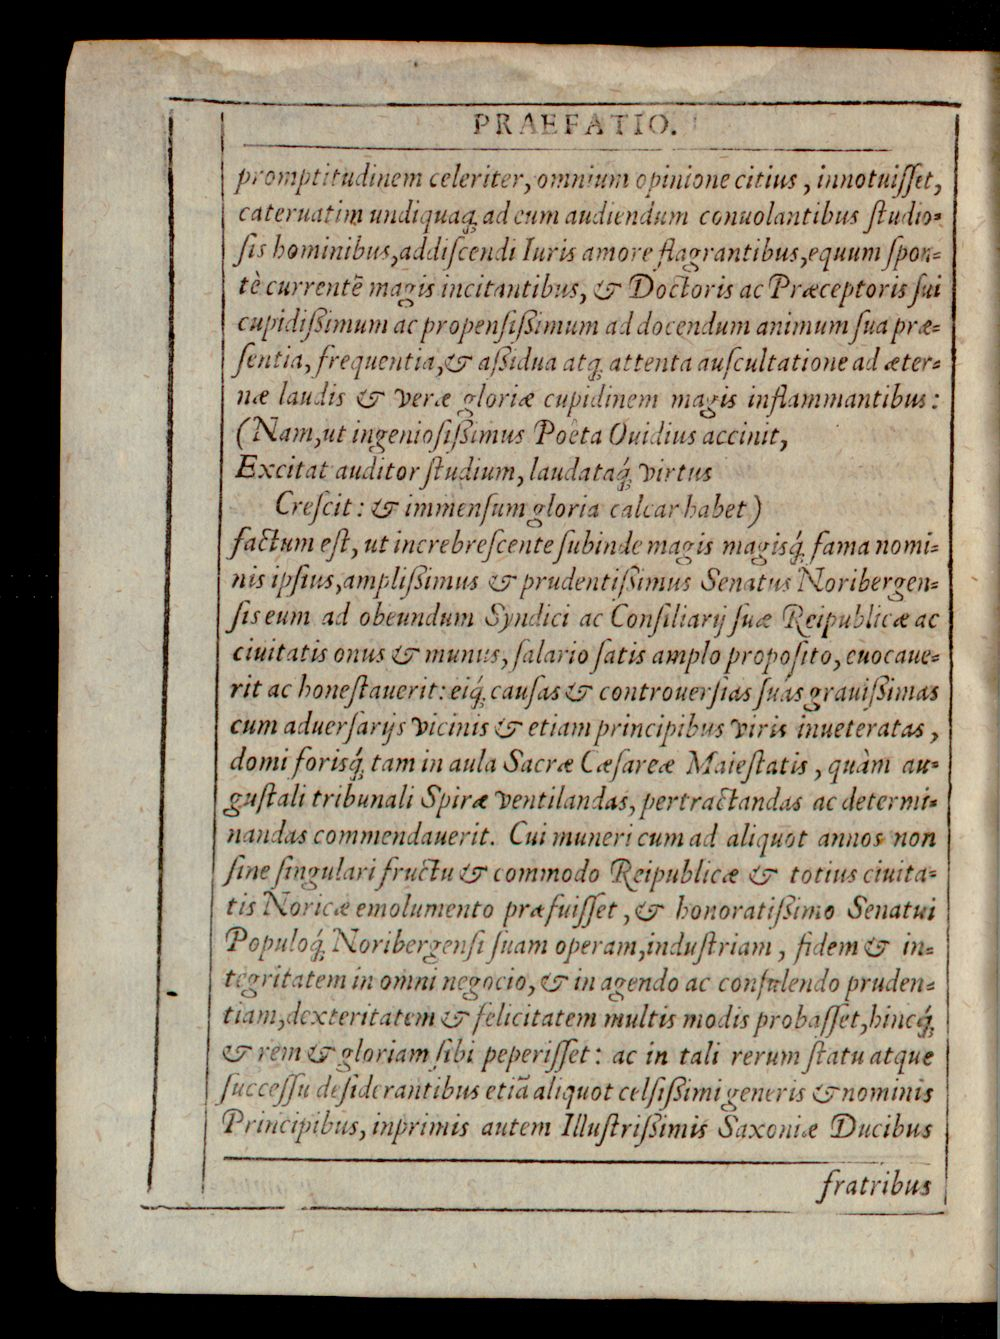 PRAEFATIO.
promptitudinem celeriter, omnium opinione citius, innotuiſſet,
cateruatim undiquaq́; ad eum audiendum conuolantibus ſtudio-
ſis hominibus, addiſcendi Iuris amore flagrantibus, equum ſpon-
tè currentẽ magis incitantibus, & Doctoris ac Præceptoris ſui
cupidißimum ac propenſißimum ad docendum animum ſua præ-
ſentia, frequentia, & aßidua atq; attenta auſcultatione ad æter-
næ laudis & veræ gloriæ cupidinem magis inflammantibus:
(Nam, ut ingenioſißimus Poëta Ouidius accinit,
Excitat auditor ſtudium, laudataq́; virtus
Creſcit: & immenſum gloria calcar habet)
factum eſt, ut increbreſcente ſubinde magis magisq́; fama nomi-
nis ipſius, amplißimus & prudentißimus Senatus Noribergen-
ſis eum ad obeundum Syndici ac Conſiliarij ſuæ Reipublicæ ac
ciuitatis onus & munus, ſalario ſatis amplo propoſito, euocaue-
rit ac honeſtauerit: eiq́; cauſas & controuerſias ſuas grauißimas
cum aduerſarijs vicinis & etiam principibus viris inueteratas,
domi forisq́; tam in aula Sacræ Cæſareæ Maieſtatis, quàm au-
guſtali tribunali Spiræ ventilandas, pertractandas ac determi-
nandas commendauerit. Cui muneri cum ad aliquot annos non
ſine ſingulari fructu & commodo Reipublicæ & totius ciuita-
tis Noricæ emolumento præfuiſſet, & honoratißimo Senatui
Populoq́; Noribergenſi ſuam operam, induſtriam, fidem & in-
tegritatem in omni negocio, & in agendo ac conſulendo pruden-
tiam, dexteritatem & felicitatem multis modis probaſſet, hincq́;
& rem & gloriam ſibi peperiſſet: ac in tali rerum ſtatu atque
ſucceſſu deſiderantibus etiã aliquot celſißimi generis & nominis
Principibus, inprimis autem Illuſtrißimis Saxoniæ Ducibus
fratribus